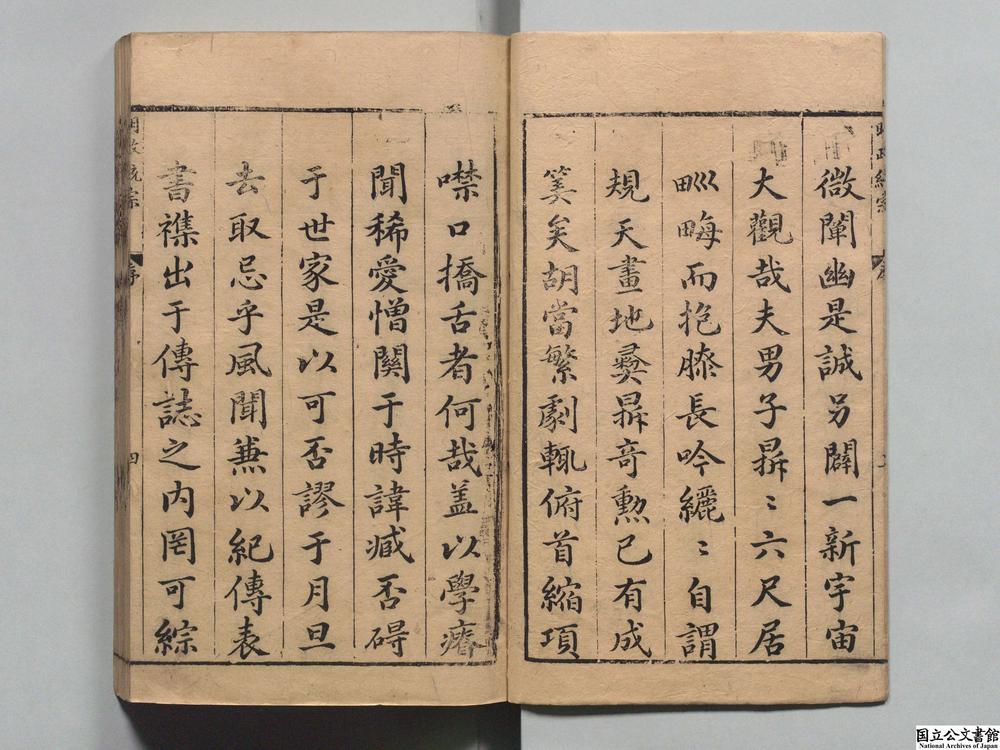 微闡幽是誠另闢一新宇宙
大觀哉夫男子昪〻六尺居
甽畮而抱膝長吟纚〻自謂
規天畫地彛鼎竒勲已有成
筭矣胡當繁劇輒俯首縮項
噤口撟舌者何哉盖以學瘠
聞稀愛憎關于時諱臧否碍
于世家是以可否謬于月旦
去取忌乎風聞兼以紀傳表
書襍出于傳誌之内罔可綜
序
四
国立公文書館
National Archives of Japan